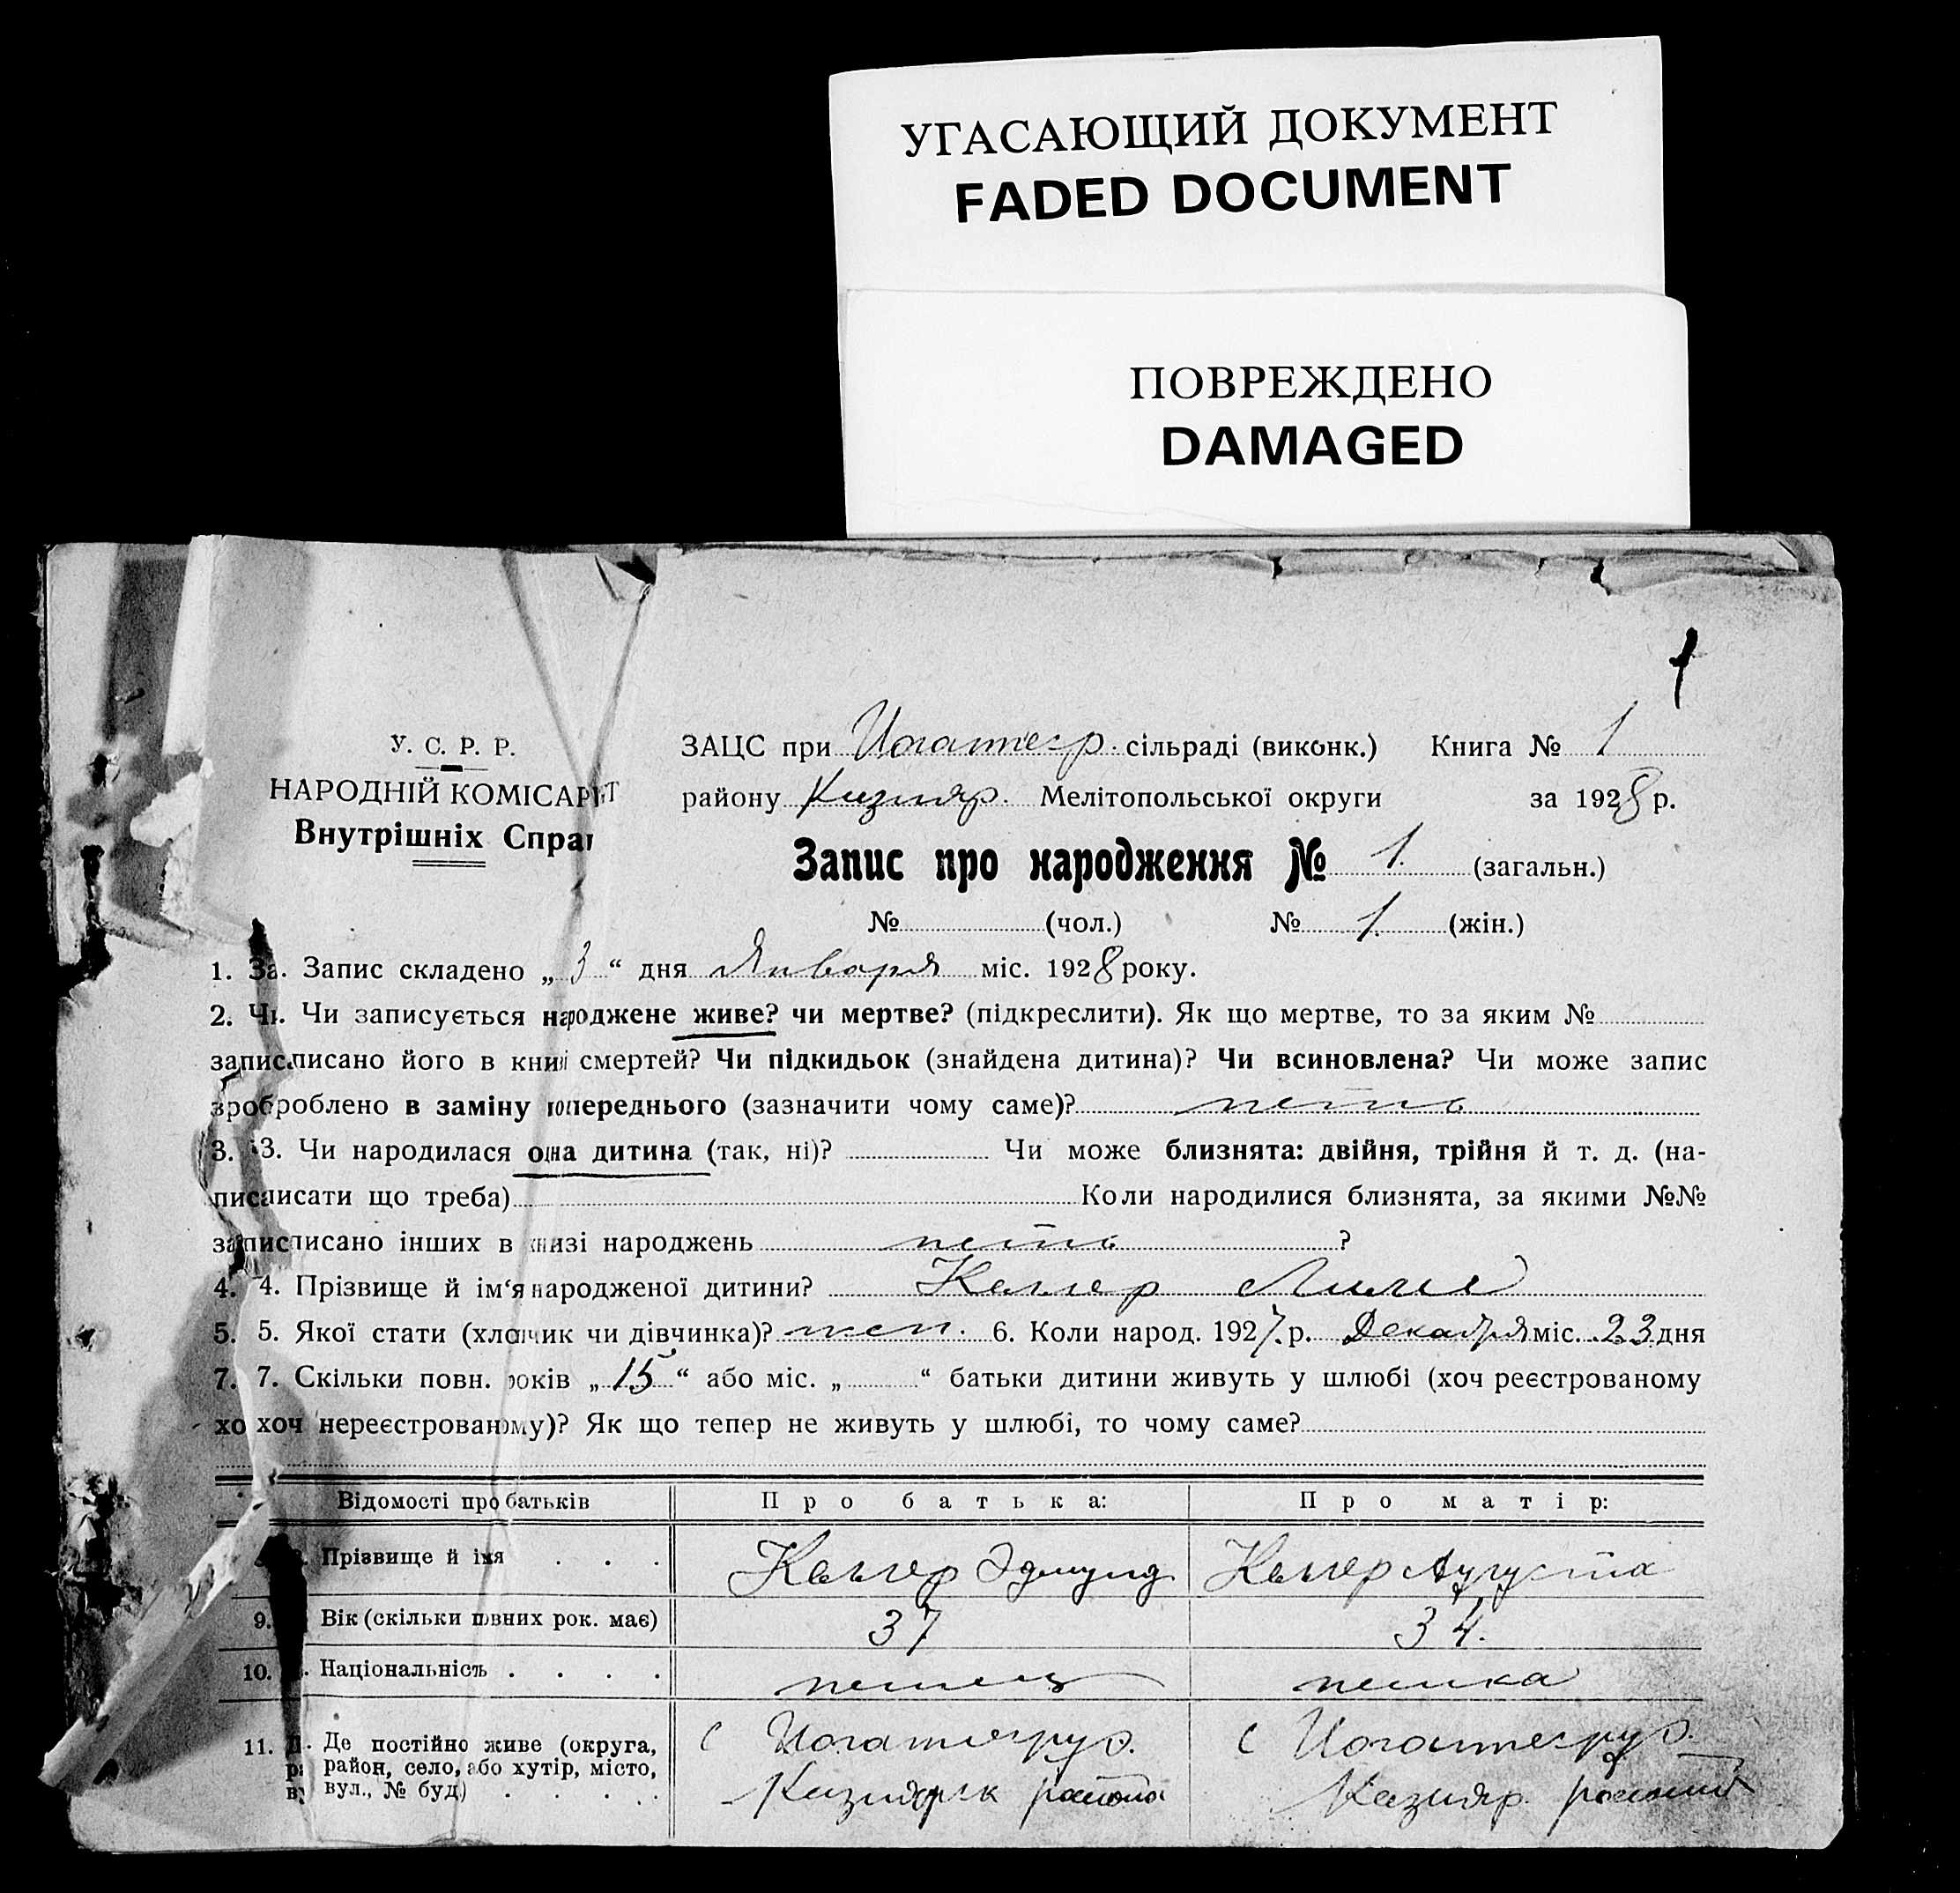 УГАСАЮЩИЙ ДОКУМЕНТ
FADED DOCUMENT
ПОВРЕЖДЕНО
DAMAGED
1
У. С. Р. Р.
НАРОДНІЙ КОМІСАРІЯТ
Внутрішніх Справ
ЗАЦС при Иоганнеср. сільраді (виконк.) Книга № 1
району Кизияр. Мелітопольської округи за 1928 р.
Запис про народження № 1. (загальн.)
№ (чол.) № 1. (жін.)
1. За. Запис складено „ 3 “ дня Января міс. 1928 року.
2. Чи. Чи записується народжене живе? чи мертве? (підкреслити). Як що мертве, то за яким №
записписано його в книзі смертей? Чи підкидьок (знайдена дитина)? Чи всиновлена? Чи може запис
зробро­блено в заміну попереднього (зазначити чому саме)? нетъ
3. 3. Чи народилася одна дитина (так, ні)? Чи може близнята: двійня, трійня й т. д. (на-
писаисати що треба) Коли народилися близнята, за якими №№
записписано інших в книзі народжень нетъ ?
4. 4. Прізвище й ім‘я народженої дитини? Келлер
5. 5. Якої стати (хлопчик чи дівчинка)? жен. 6. Коли народ. 1927. р. Декабря міс. 23 дня
7. 7. Скільки повн. років „ 15 “ або міс. „ “ батьки дитини живуть у шлюбі (хоч реєстрованому
хо хоч нереєстрованому)? Як що тепер не живуть у шлюбі, то чому саме?
Відомості про батьків Про батька: Про матір:
Прізвище й імя . . . Келлер Эдмунд Келлер Аугуста
9. Вік (скільки повних рок. має) 37 34.
10. Національність . . . . немец немка
11. Де постійно живе (округа, с Иоганнесруэ. с Иоганнесруэ.
район, село, або хутір, місто, Кизиярск района Кизияр. района
вул., № буд.) . . . .